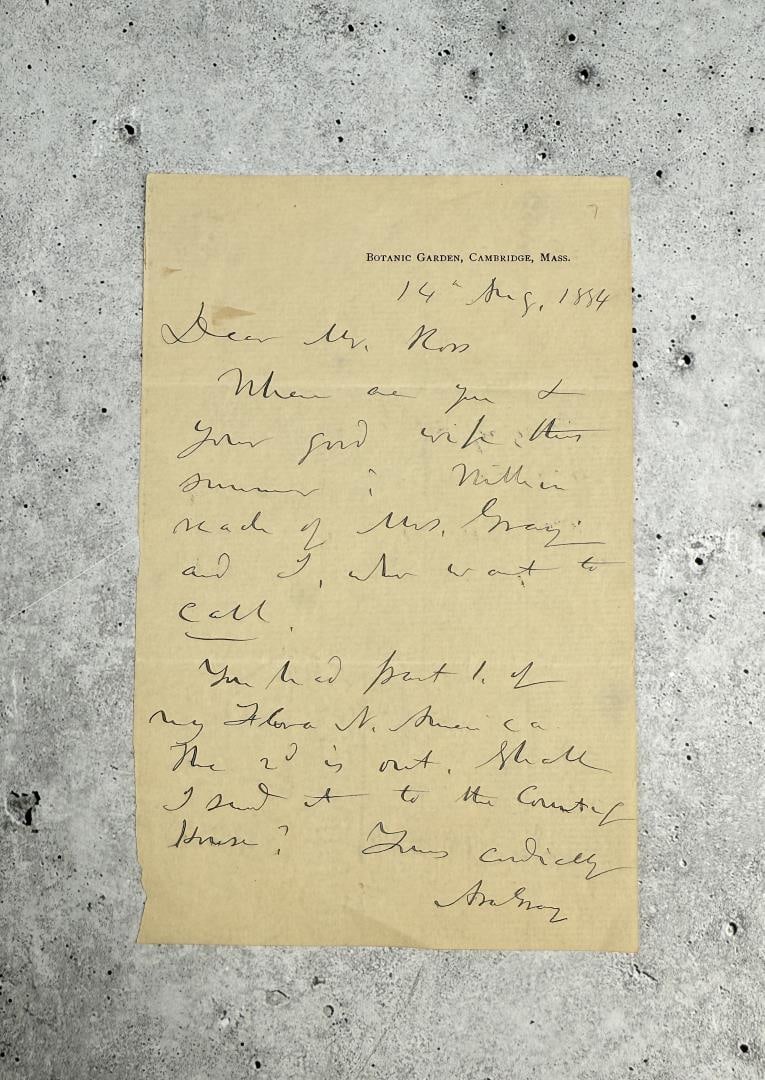 7
BOTANIC GARDEN, CAMBRIDGE, MASS.
14th Aug, 1884
Dear Mr. Ross
Where are you &
your good wife this
summer? Within
reach of Mrs. Gray
and I, who want to
call.
You had part 1. of
my Flora N. America
The 2d is out. Shall
I send it to the Counting
House? Yours cordially
Asa Gray